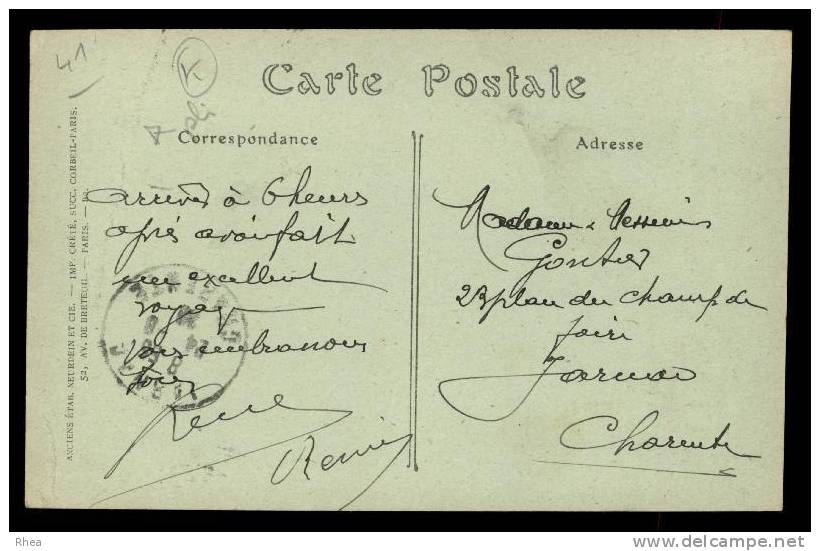 41
K
Carte Postale
Correspondance
Adresse
arrivés à 6 heurs
après avoir fait
un excellent
voyage
vous embrassons
tous
René
Madame &
Gontier
23 place du champ de
foire
Jarnac
Charente
ANCIENS ÉTAB. NEURDEIN ET CIE. — IMP. CRÉTÉ, SUCC. CORBEIL-PARIS.
52, AV. DE BRETEUIL. — PARIS. —
Rhea
delcampe.net